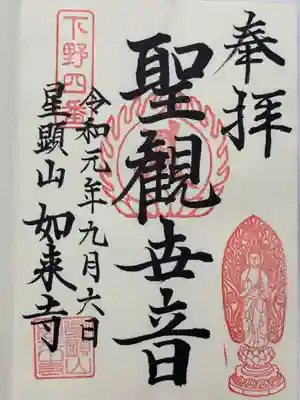 奉拝
聖觀世音
令和元年九月六日
星顕山 如来寺
下野四番